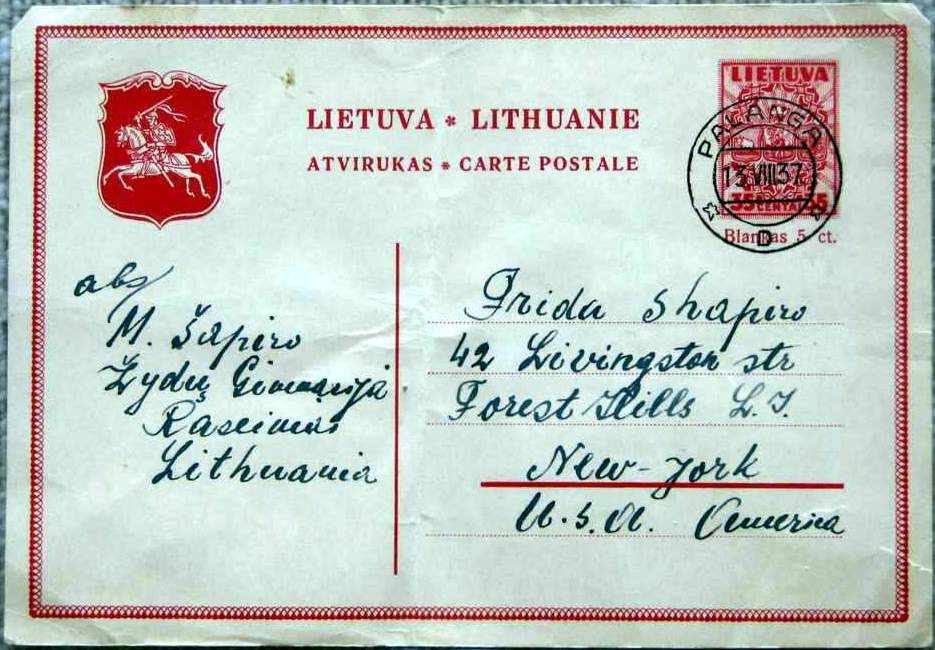 LIETUVA * LITHUANIE
ATVIRUKAS * CARTE POSTALE
LIETUVA
35 CENTAI 35
PALANGA
13.VIII.37.
D
Blankas 5 ct.
abs/
M. Šapiro
Žydų Gimnazija
Raseiniai
Lithuania
Frida Shapiro
42 Livingston str
Forest Hills L.I.
New-York
U.S.A. America